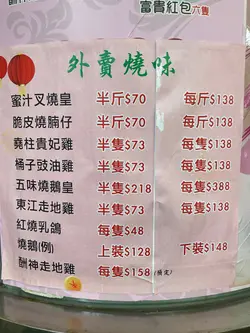 富貴紅包六隻
外賣燒味
蜜汁叉燒皇 半斤$70 每斤$138
脆皮燒腩仔 半斤$70 每斤$138
堯柱貴妃雞 半隻$73 每隻$138
桶子豉油雞 半隻$73 每隻$138
五味燒鵝皇 半隻$218 每隻$388
東江走地雞 半隻$73 每隻$138
紅燒乳鴿 每隻$48
燒鵝(例) 上裝$128 下裝$148
酬神走地雞 每隻$158(預定)